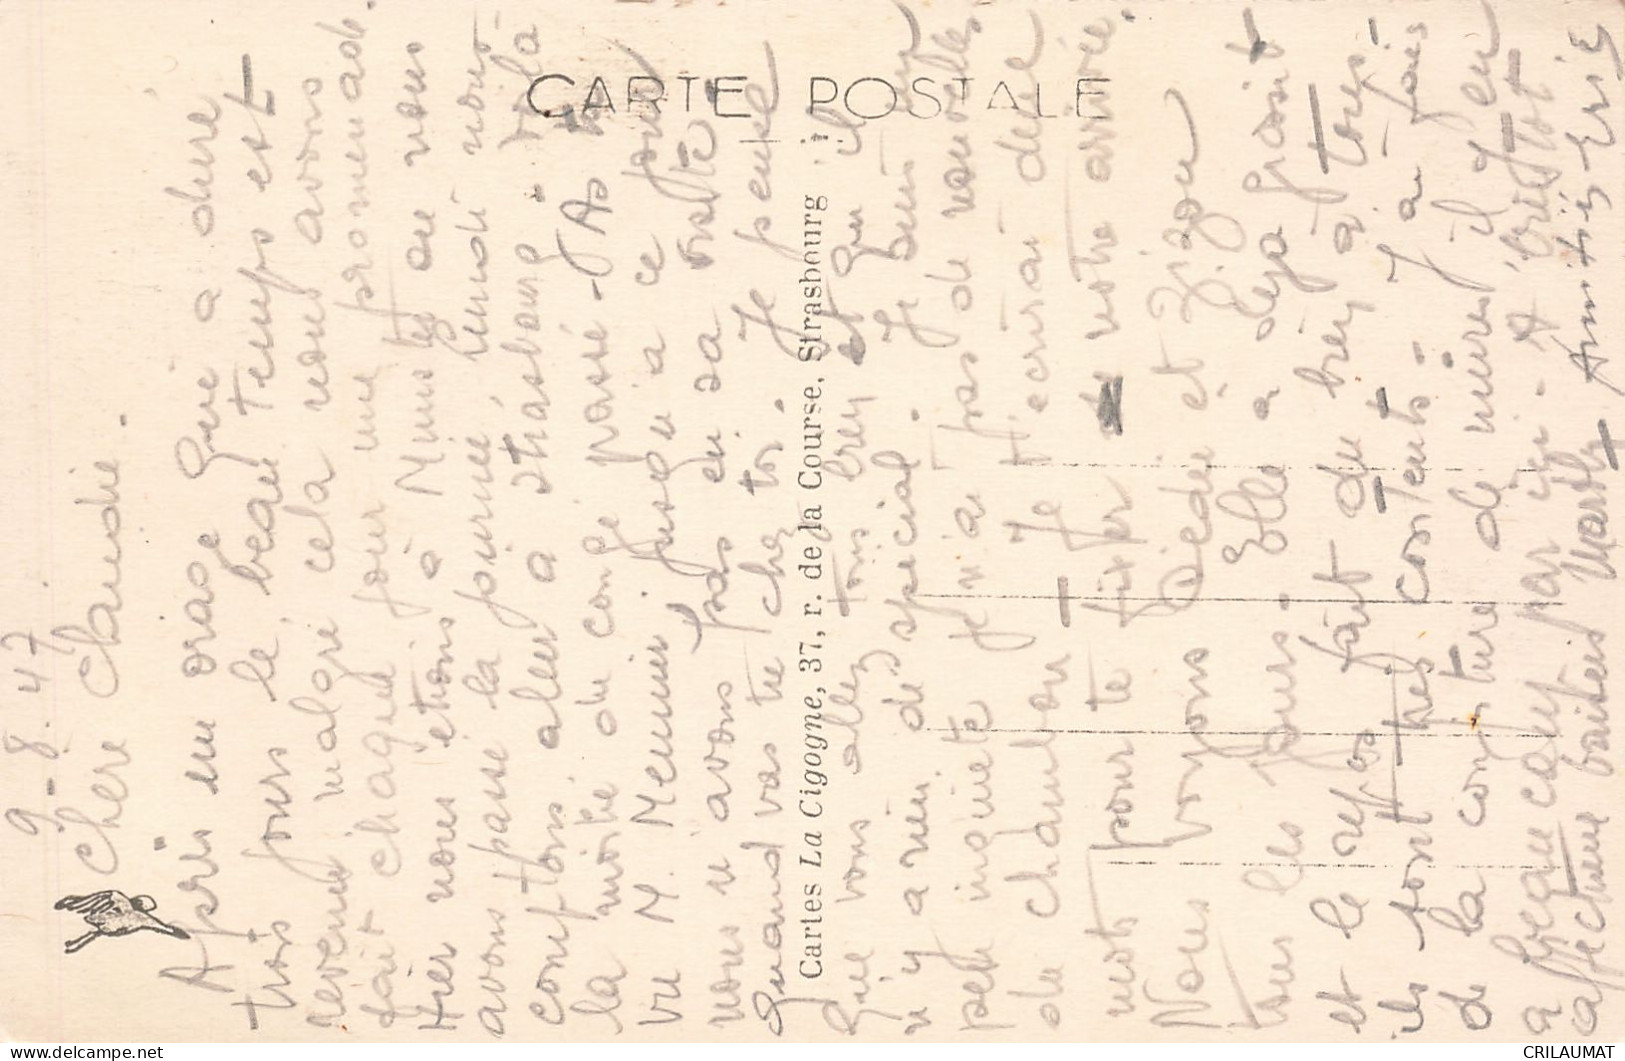 CARTE POSTALE
Cartes La Cigogne, 37, r. de la Course, Strasbourg
9-8.47
Chère Claudie.
Après un orage qui a duré
trois jours le beau temps est
revenu malgré cela nous avons
fait chaque jour une promenade.
Hier nous étions à Munster ou nous
avons passé la journée, lundi nous
comptons aller à Strasbourg. voilà
la moitié du congé passé. As tu
vu M. Meunier jusqu'à ce jour
nous n'avons pas eu sa visite
Quand vas tu chez toi. Je pense
que vous allez tous bien et qu'il
n'y a rien de spécial. Je suis un
peu inquiète je n'ai pas de nouvelles
du chambon Je t'écrirai deux
mots pour te fixer notre arrivée.
Nous voyons Dédée et Zizou
tous les jours. Elle a déja grossit
et le repos fait du bien à tous.
ils sont très contents. J'ai fais
de la confiture de mures il y en
a beaucoup par ici. A bientôt
affectueux baisers Marthe Amitiés Eric